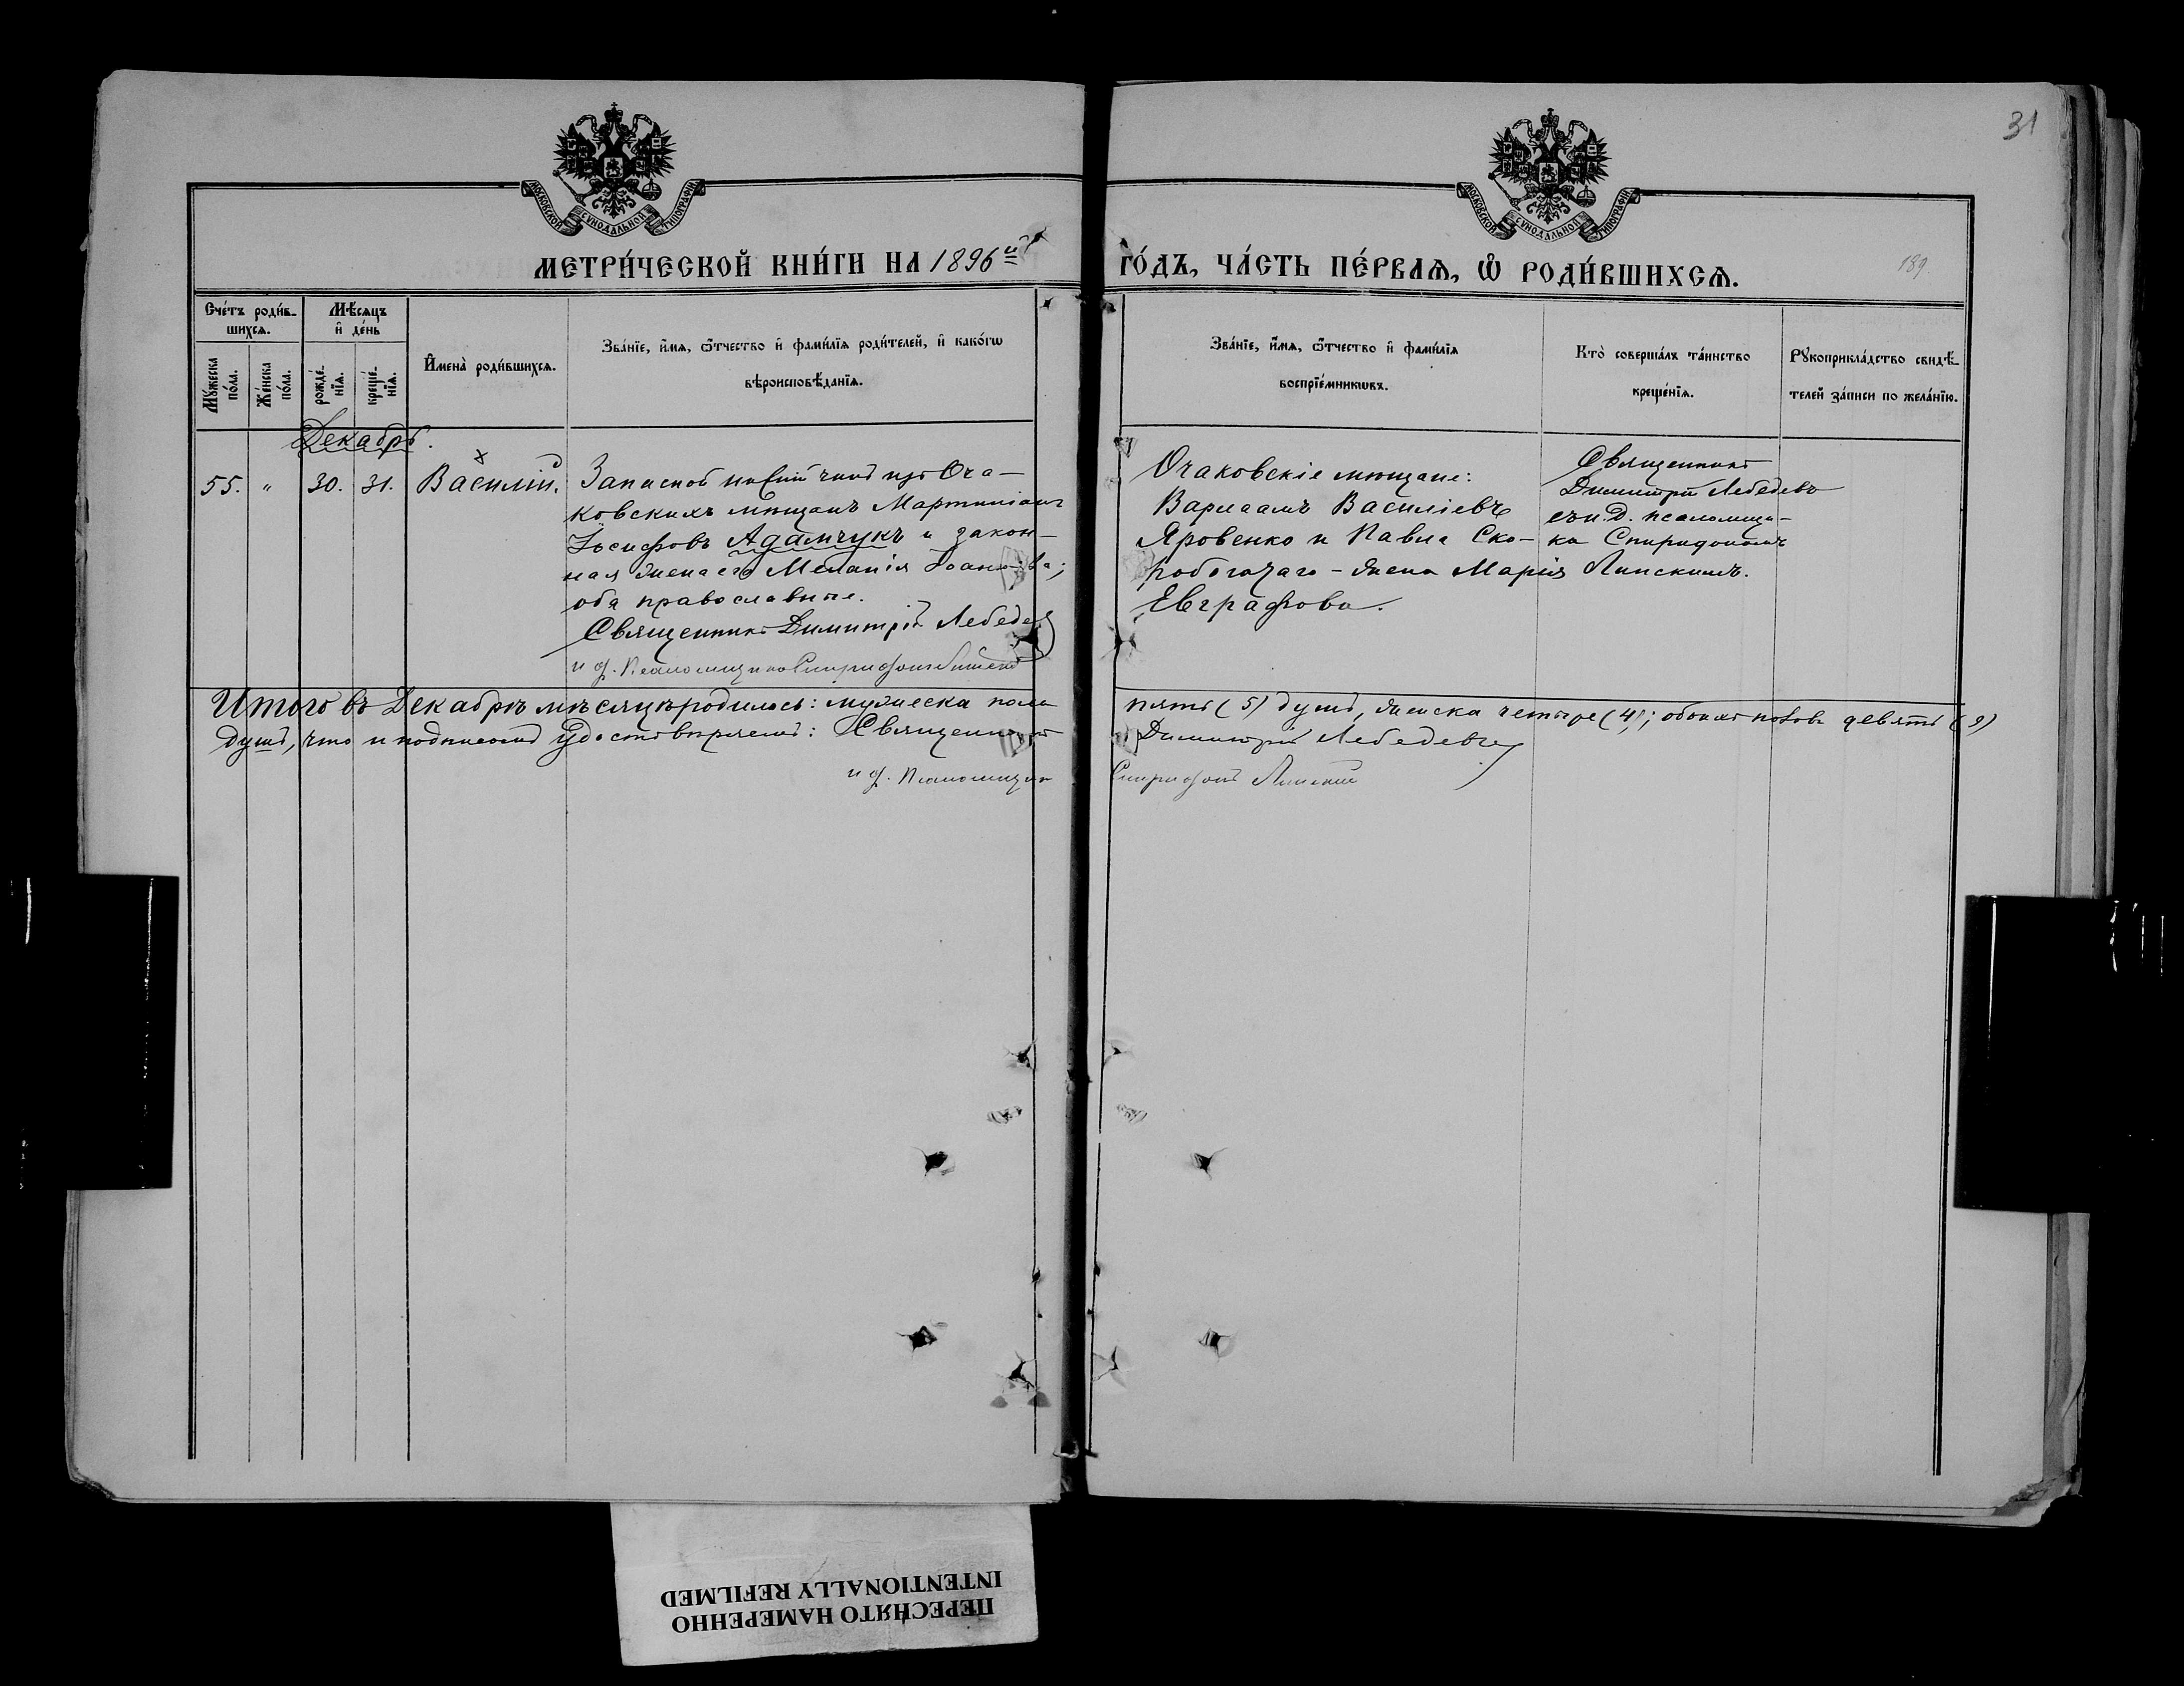 31
МОСКОВСКОЙ СУНОДАЛЬНОЙ ТИПОГРАФІИ
МОСКОВСКОЙ СУНОДАЛЬНОЙ ТИПОГРАФІИ
МЕТРИ́ЧЕСКОЙ КНИ́ГИ НА 1896й
ГО́ДЪ, ЧА́СТЬ ПЕ́РВАѦ, Ѡ҆ РОДИ́ВШИХСѦ.
189
Сче́тъ роди́в-
шихсѧ.
Мѣ́сяцъ
и҆ де́нь
Мꙋ́жеска
по́ла.
Же́нска
по́ла.
рожде́-
нїѧ.
креще́-
нїѧ.
И҆мена̀ роди́вшихсѧ.
Зва́нїе, и҆́мѧ, ѻ҆́тчество и҆ фами́лїѧ роди́телей, и҆ како́гѡ
вѣроисповѣ́данїѧ.
Зва́нїе, и҆́мѧ, ѻ҆́тчество и҆ фами́лїѧ
воспрїе́мникѡвъ.
Кто̀ соверша́лъ та́инство
креще́нїѧ.
Рꙋкоприкла́дство свидѣ́-
телей за́писи по жела́нїю.
Декабрь.
55. " 30. 31. Василій.
Запасной чинъ изъ Оча-
ковскихъ мѣщанъ Мартиніанъ
Іосифовъ Адамчукъ и закон-
ная жена его Меланія Іоаннова;
оба православные.
Священникъ Димитрій Лебедевъ
и д. Псаломщика Спиридонъ Липскій
Очаковскіе мѣщане:
Варлаамъ Василіевъ
Яровенко и Павла Ско-
робогачаго - жена Марія
Евграфова.
Священникъ
Димитрій Лебедевъ
съ и. д. псаломщи-
ка Спиридономъ
Липскимъ.
Итого въ Декабрѣ мѣсяцѣ родилось: мужеска пола пять (5) душъ, женска четыре (4); обоихъ половъ девять (9)
душъ, что и подписомъ удостовѣряемъ: Священникъ Димитрій Лебедевъ
и д. Псаломщика Спиридонъ Липскій
ПЕРЕСНЯТО НАМЕРЕННО
INTENTIONALLY REFILMED